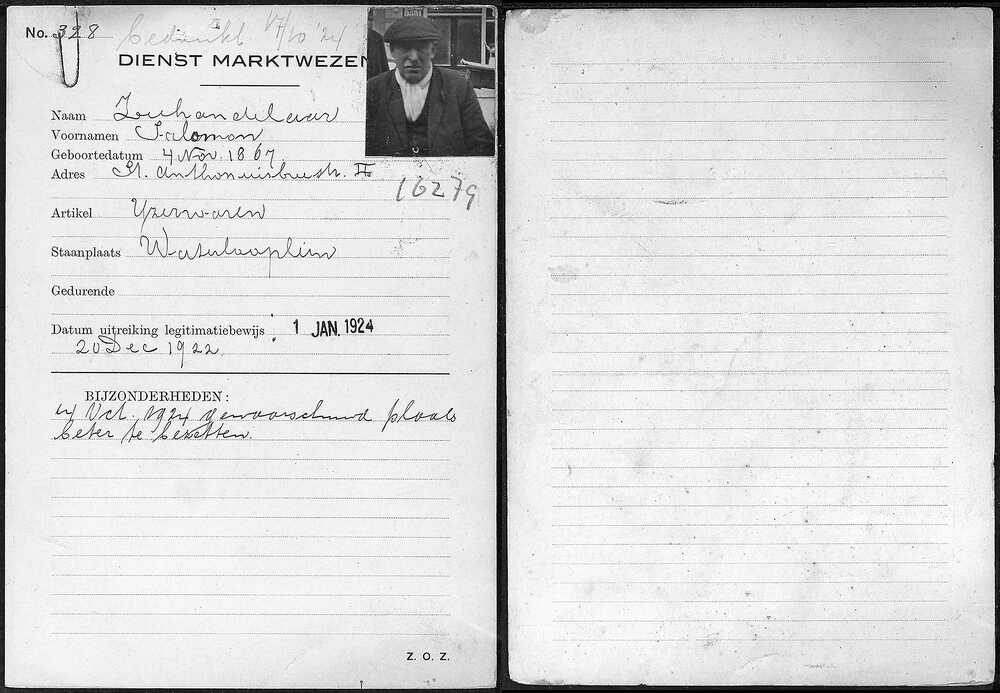 No. 328 bedankt 17/10 '24
DIENST MARKTWEZEN
Naam Leuhandelaar
Voornamen Salomon
Geboortedatum 4 Nov. 1867
Adres St. Anthoniisbreestr. II
16279
Artikel Yzerwaren
Staanplaats Waterlooplein
Gedurende
Datum uitreiking legitimatiebewijs : 1 JAN. 1924
20 Dec 1922.
BIJZONDERHEDEN:
4 Oct. 1924 gewaarschuwd plaats
beter te bezetten.
Z. O. Z.